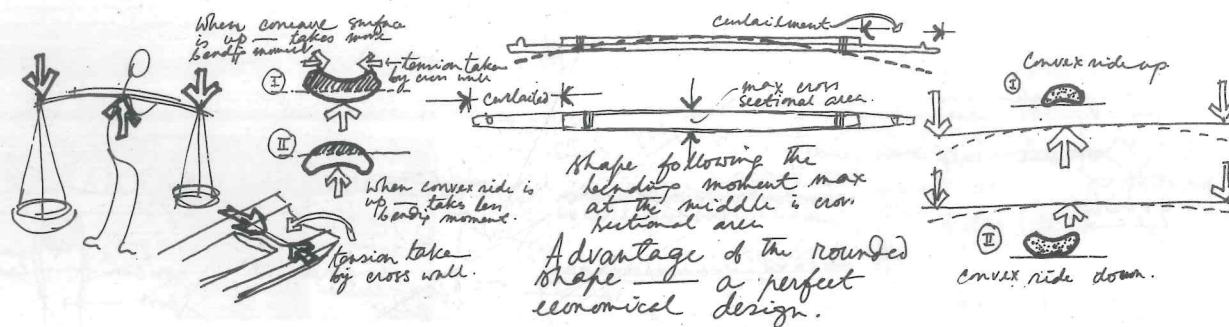 When concave surface
is up — takes more
bending moment
tension taken
by cross wall
I
II
When convex side is
up — takes less
bendig moment.
tension take
by cross wall.
curtailment
curtailed
max cross
sectional area.
shape following the
bending moment max
at the middle is cros.
sectional area
Advantage of the rounded
shape — a perfect
economical design.
Convex side up
I
II
convex side down.